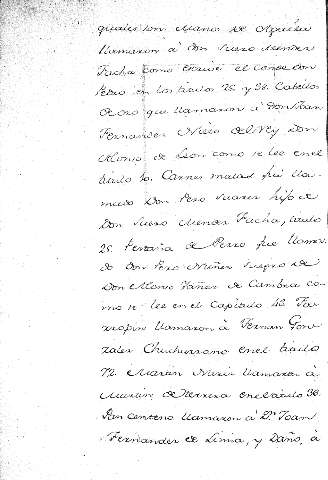 quales son Mano de
llamaron à Don Suero Mendez
Fucha como escrive el Conde Don
Pedro en los titulos 25 y 28. Cabellos
de oro que llamaron à Don Juan
Fernandez Nieto del Rey Don
Alonso de Leon como se lee en el
titulo 10. Carnes malas fué lla-
mado Don Pero Suarez hijo de
Don Suero Mendez Fucha, titulo
25 de Perro fue llama-
do Don Pero Nuñez suegro de
Don Alonso Yañez de Cambra co-
mo se lee en el Capitulo 40
llamaron à Fernan Gon-
zalez Chicharrono en el titulo
72 llamaron à
Martin de Herrera en el titulo 38.
Pan centeno llamaron à Dn. Joan
Fernandez de Limia, y Daño, à